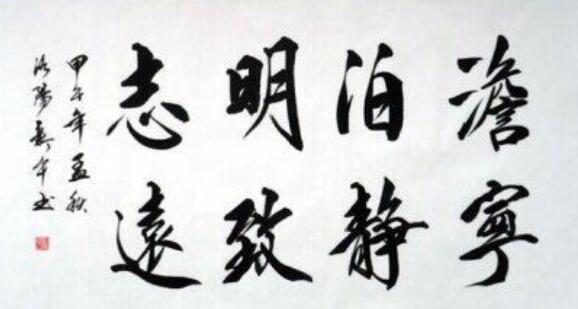 澹泊明志
寧靜致遠
甲午年孟秋
洛陽 书